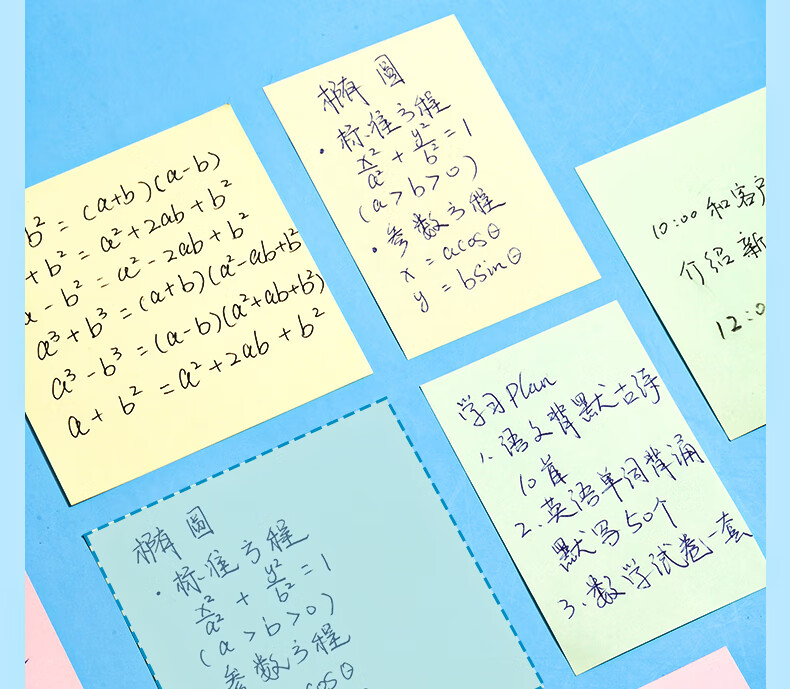 b² = (a+b)(a-b)
+ b² = a² + 2ab + b²
a - b² = a² - 2ab + b²
a³ + b³ = (a+b)(a²-ab+b²
a³ - b³ = (a-b)(a²+ab+b²)
a + b² = a² + 2ab + b²
椭圆
·标准方程
x²/a² + y²/b² = 1
(a > b > 0)
·参数方程
x = acosθ
y = bsinθ
10:00 和客户
介绍新
12:0
学习Plan
1、语文背默古诗
10首
2、英语单词背诵
默写50个
3、数学试卷一套
椭圆
·标准方程
x²/a² + y²/b² = 1
(a > b > 0)
参数方程
cosθ